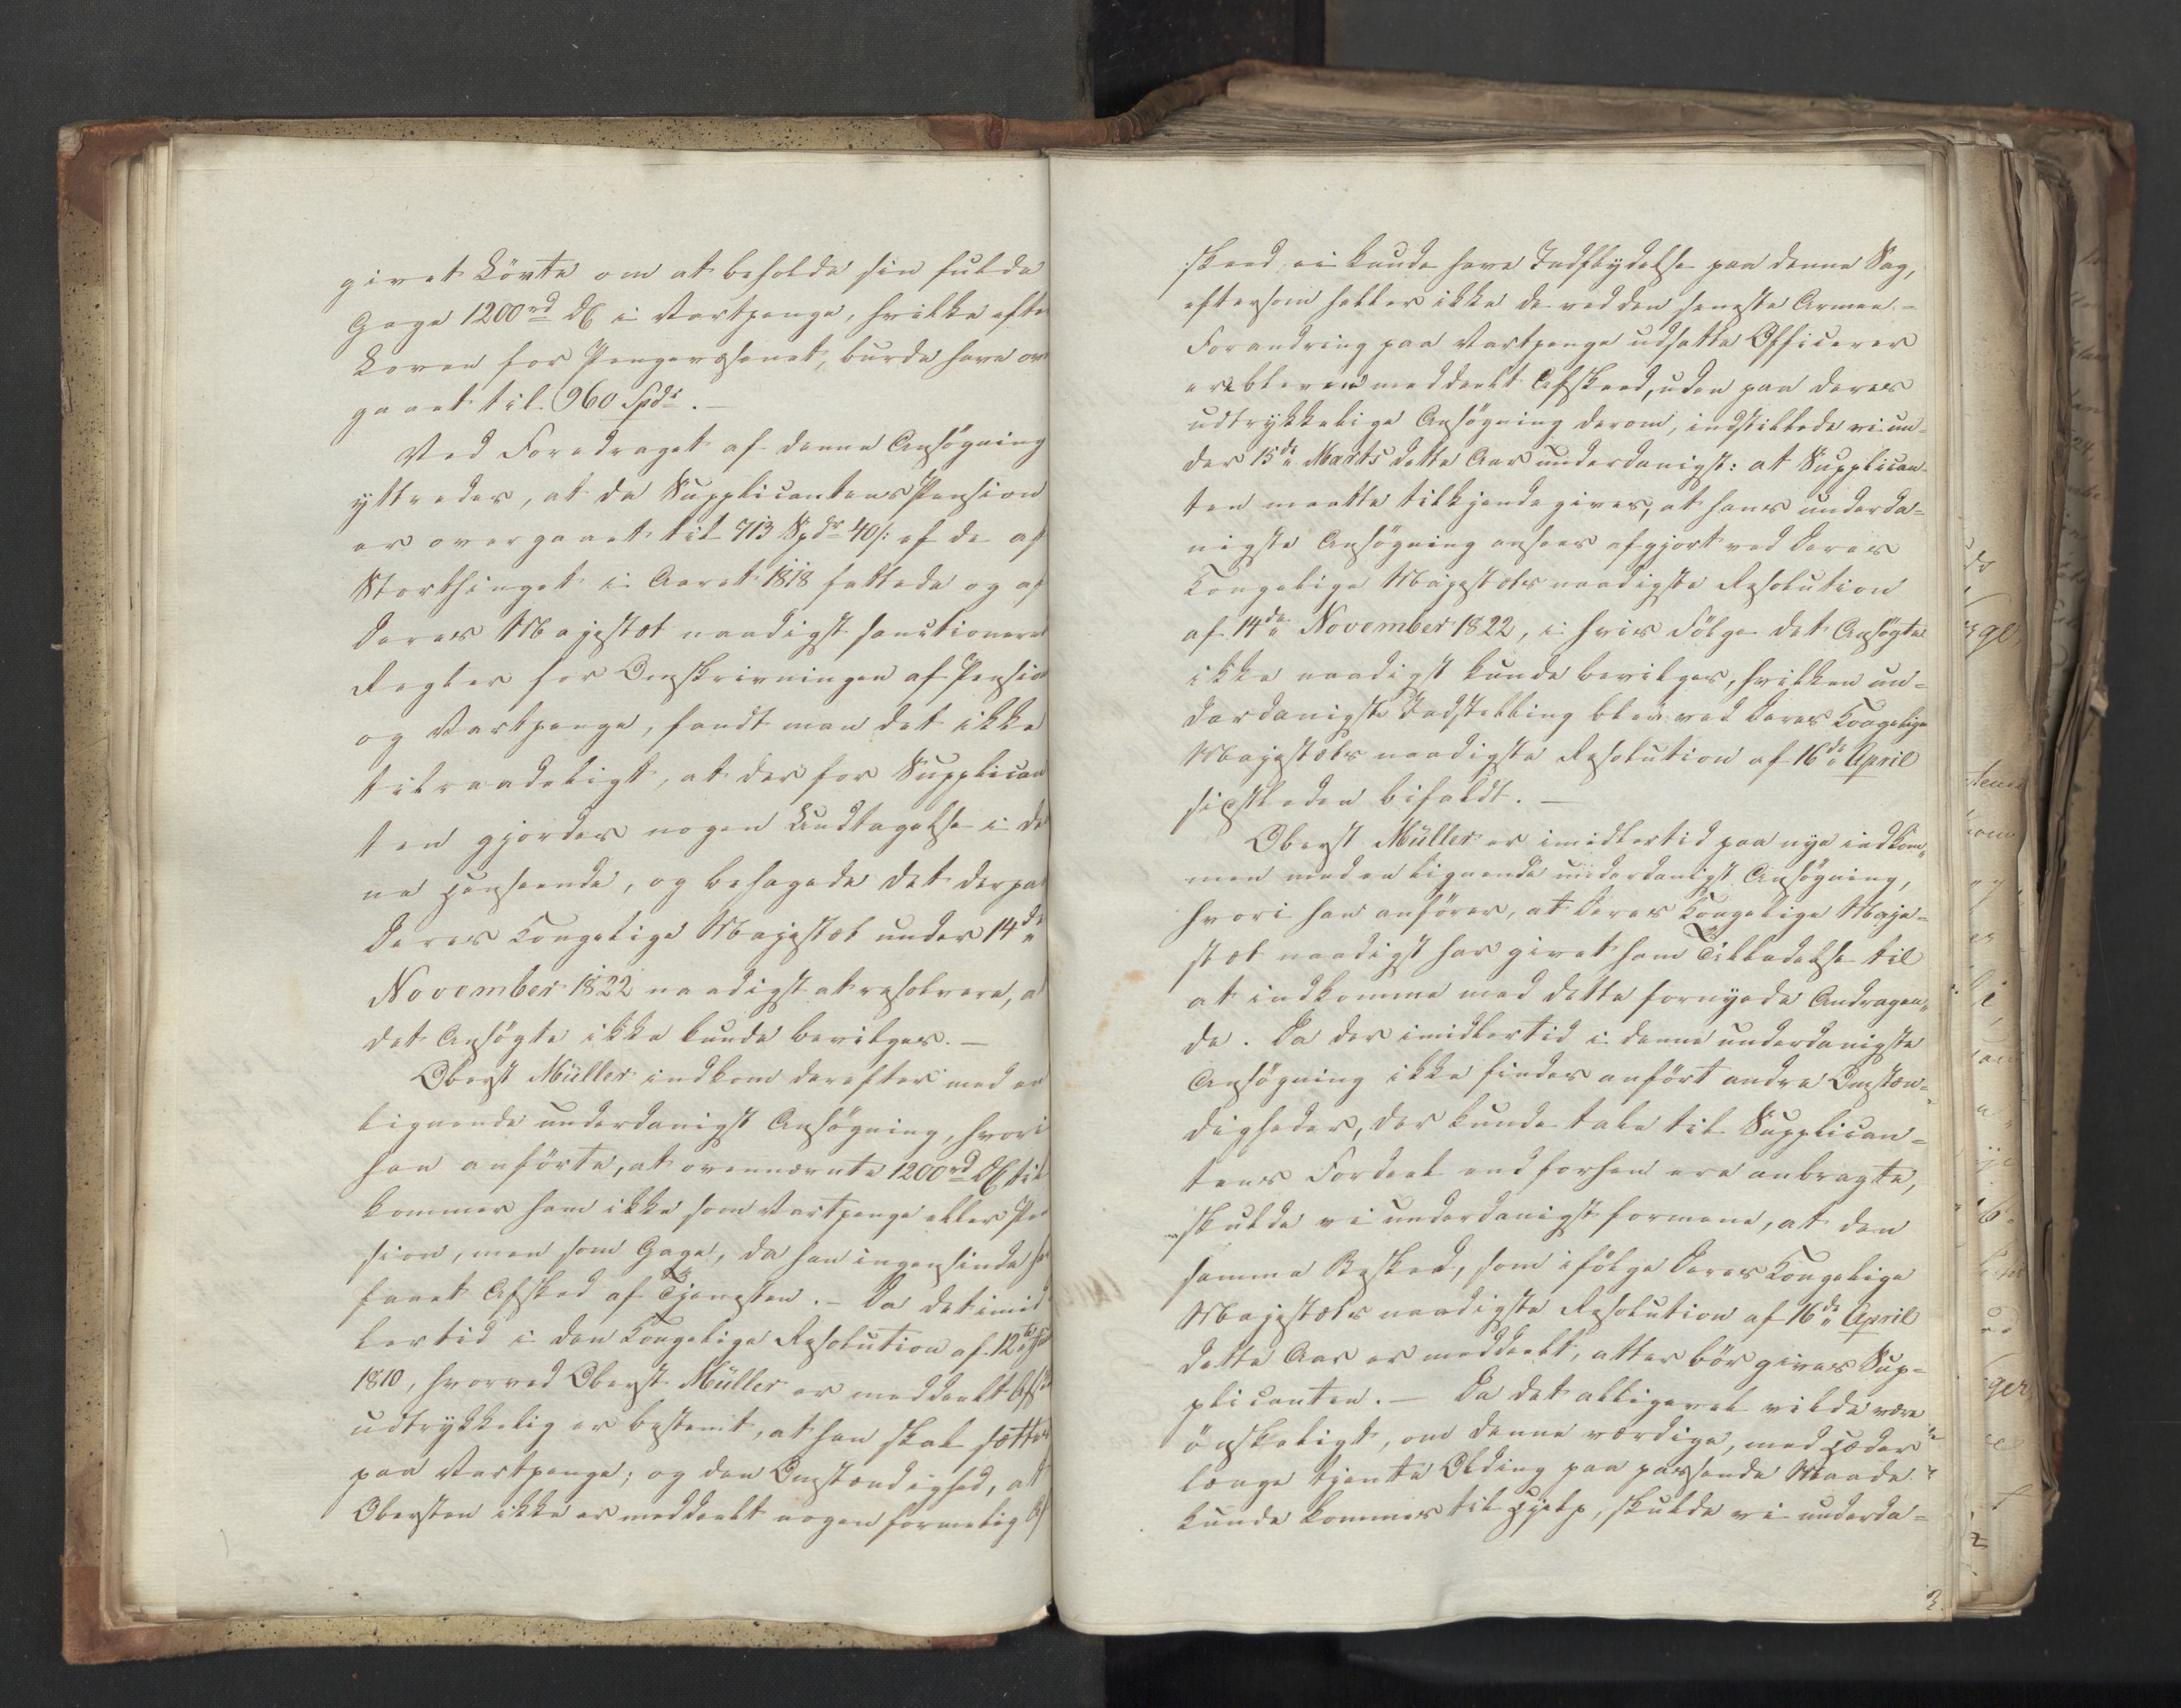 givet Løvte om at beholde sin fulde
Gage 1200 rd DC i Vartpenge, hvilke efter
Loven for Pengevæsenet, burde have over
gaaet til 960 Spdr. —
Ved Foredraget af denne Ansøgning
yttredes, at da Supplicantens Pension
er overgaaet til 713 Spdr 40 s: af de af
Storthinget i Aaret 1818 fattede og af
Deres Majestæt naadigst sanctionerede
Regler for Omskrivningen af Pension
og Vartpenge, fandt man det ikke
tilraadeligt, at der for Supplican
ten gjordes nogen Undtagelse i den
ne Henseende, og behagede det derpaa
Deres Kongelige Majestæt under 14de
November 1822 naadigst at resolvere, at
det Ansøgte ikke kunde bevilges. —
Oberst Müller indkom derefter med en
lignende underdanigst Ansøgning, hvori
han anførte, at ovennævnte 1200 rd DC til
kommer ham ikke som Vartpenge eller Pen
sion, men som Gage, da han ingensinde har
faaet Afsked af Tjenesten. — Da det imid
lertid i den Kongelige Resolution af 12te
1810, hvorved Oberst Müller er meddeelt Afsk
udtrykkelig er bestemt, at han skal sættes
paa Vartpenge; og den Omstændighed, at
Obersten ikke er meddeelt nogen formelig Af
skeed ei kunde have Indflydelse paa denne Sag,
eftersom heller ikke de ved den seneste Armee-
Forandring paa Vartpenge udsatte Officerer
ere bleven meddeelt Afskeed, uden paa deres
udtrykkelige Ansøgning derom, indstillede vi un-
der 15de Marts dette Aar underdanigst: at Supplican-
ten maatte tilkjendegives, at hans underda-
nigste Ansøgning ansees afgjort ved Deres
Kongelige Majestæts naadigste Resolution
af 14de November 1822, i hvis Følge det Ansøgte
ikke naadigst kunde bevilges, hvilken un-
derdanigste Indstilling blev ved Deres Kongelige
Majestæts naadigste Resolution af 16de April
sidstleden bifaldt. —
Oberst Müller er imidlertid paa nye indkom-
men med en lignende underdanigst Ansøgning,
hvori han anfører, at Deres Kongelige Maje-
stæt naadigst har givet ham Tilladelse til
at indkomme med dette fornyede Andragen-
de. Da der imidlertid i denne underdanigste
Ansøgning ikke findes anført andre Omstæn-
digheder, der kunde tale til Supplican-
tens Fordeel end forhen ere anbragte,
skulde vi underdanigst formene, at den
samme Besked, som ifølge Deres Kongelige
Majestæts naadigste Resolution af 16de April
dette Aar er meddeelt, atter bør gives Sup-
plicanten. — Da det alligevel vilde være
ønskeligt, om denne værdige, med Hæder
længe tjente Olding paa passende Maade
kunde kommes til Hjelp, skulde vi underda-